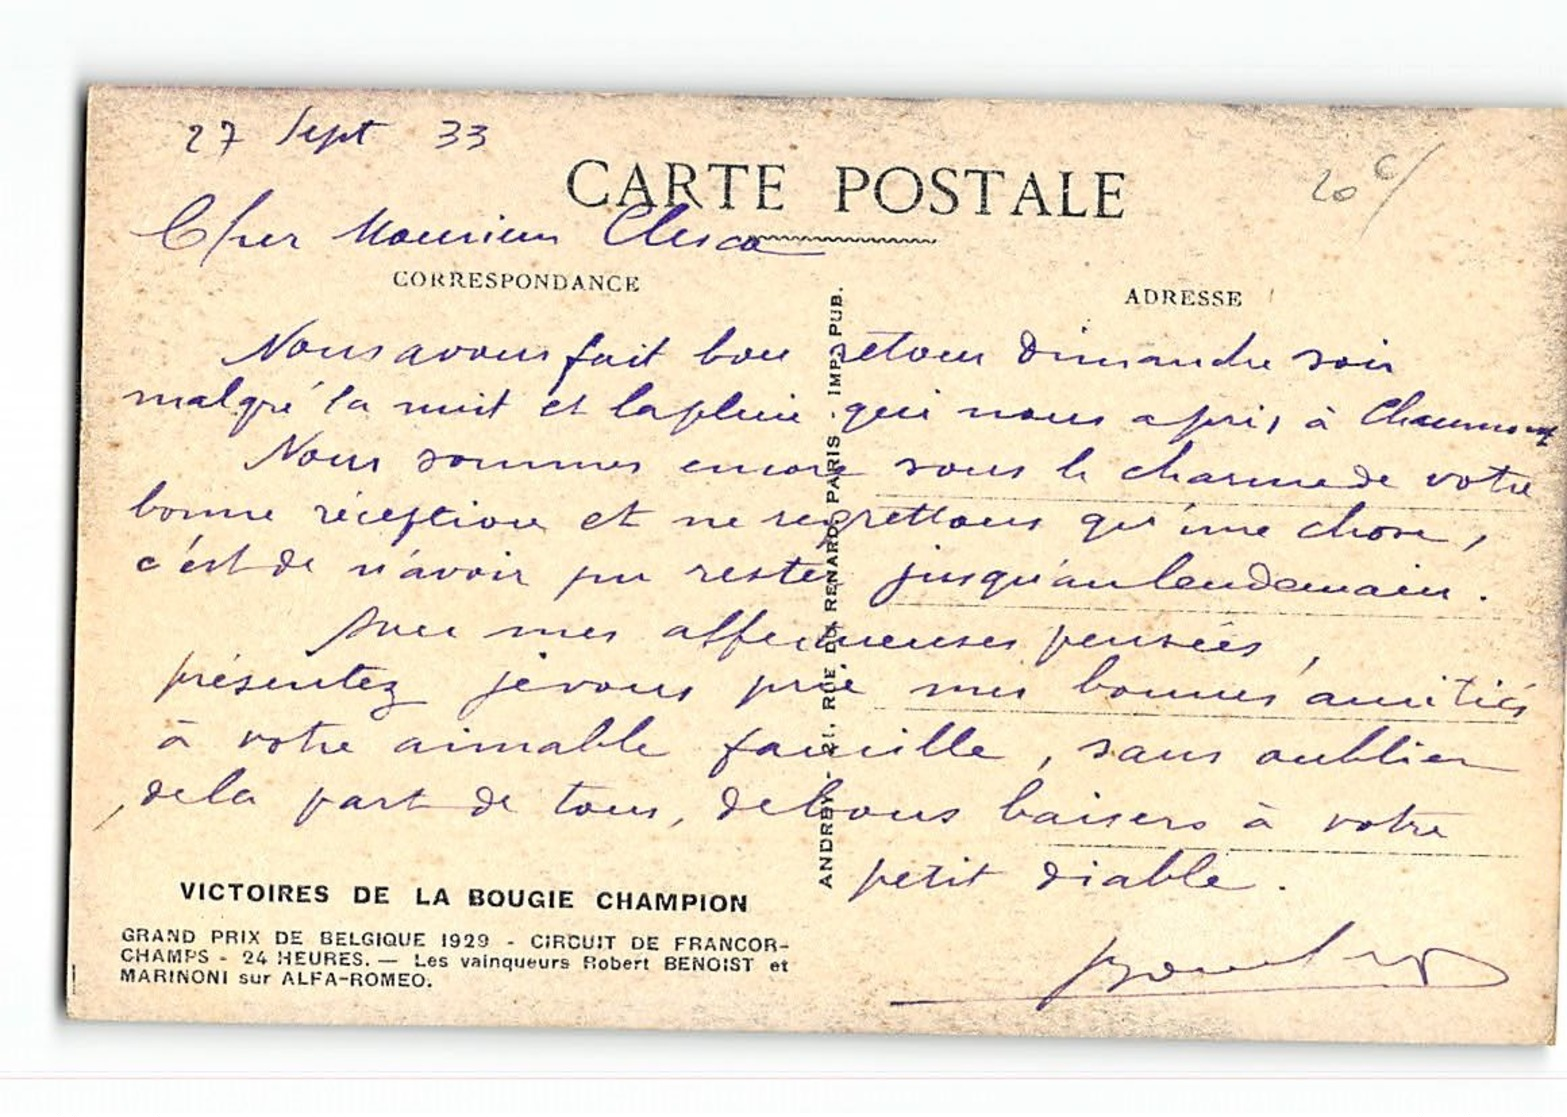 27 Sept 33
CARTE POSTALE
20 c/
Cher Monsieur
CORRESPONDANCE
ADRESSE
Nous avons fait bon retour Dimanche soir
malgré la nuit et la pluie qui nous a pris à Chaumont
Nous sommes encore sous le charme de votre
bonne réception et ne regrettons qu'une chose,
c'est de n'avoir pu rester jusqu'au lendemain.
Avec mes affectueuses pensées,
présentez je vous prie mes bonnes amitiés
à votre aimable famille, sans oublier
, de la part de tous, de bons baisers à votre
petit diable.
VICTOIRES DE LA BOUGIE CHAMPION
GRAND PRIX DE BELGIQUE 1929 - CIRCUIT DE FRANCOR-
CHAMPS - 24 HEURES. — Les vainqueurs Robert BENOIST et
MARINONI sur ALFA-ROMEO.
ANDRBY - 21, RUE DU RENARD, PARIS. IMP. PUB.